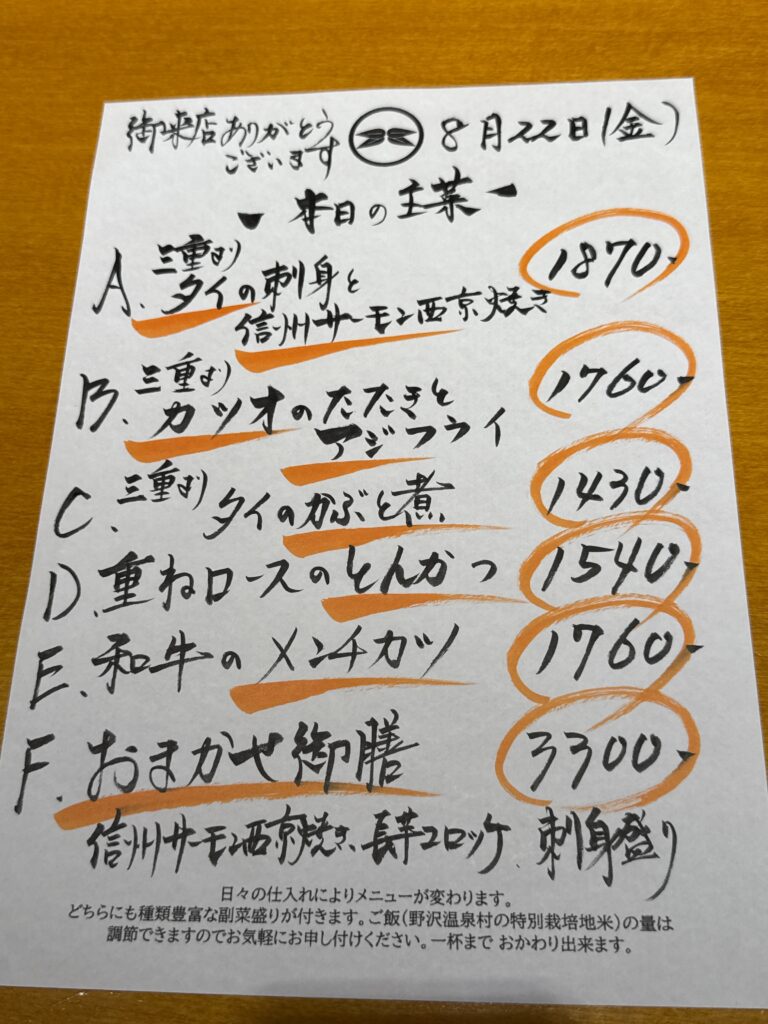 御来店ありがとう
ございます
8月22日(金)
本日の主菜
A. 三重より
タイの刺身と
信州サーモン西京焼き
1870-
B. 三重より
カツオのたたきと
アジフライ
1760-
C. 三重より
タイのかぶと煮
1430-
D. 重ねロースのとんかつ
1540-
E. 和牛のメンチカツ
1760-
F. おまかせ御膳
3300-
信州サーモン西京焼き、長芋コロッケ、刺身盛り
日々の仕入れによりメニューが変わります。
どちらにも種類豊富な副菜盛りが付きます。ご飯(野沢温泉村の特別栽培地米)の量は
調節できますのでお気軽にお申し付けください。一杯まで おかわり出来ます。